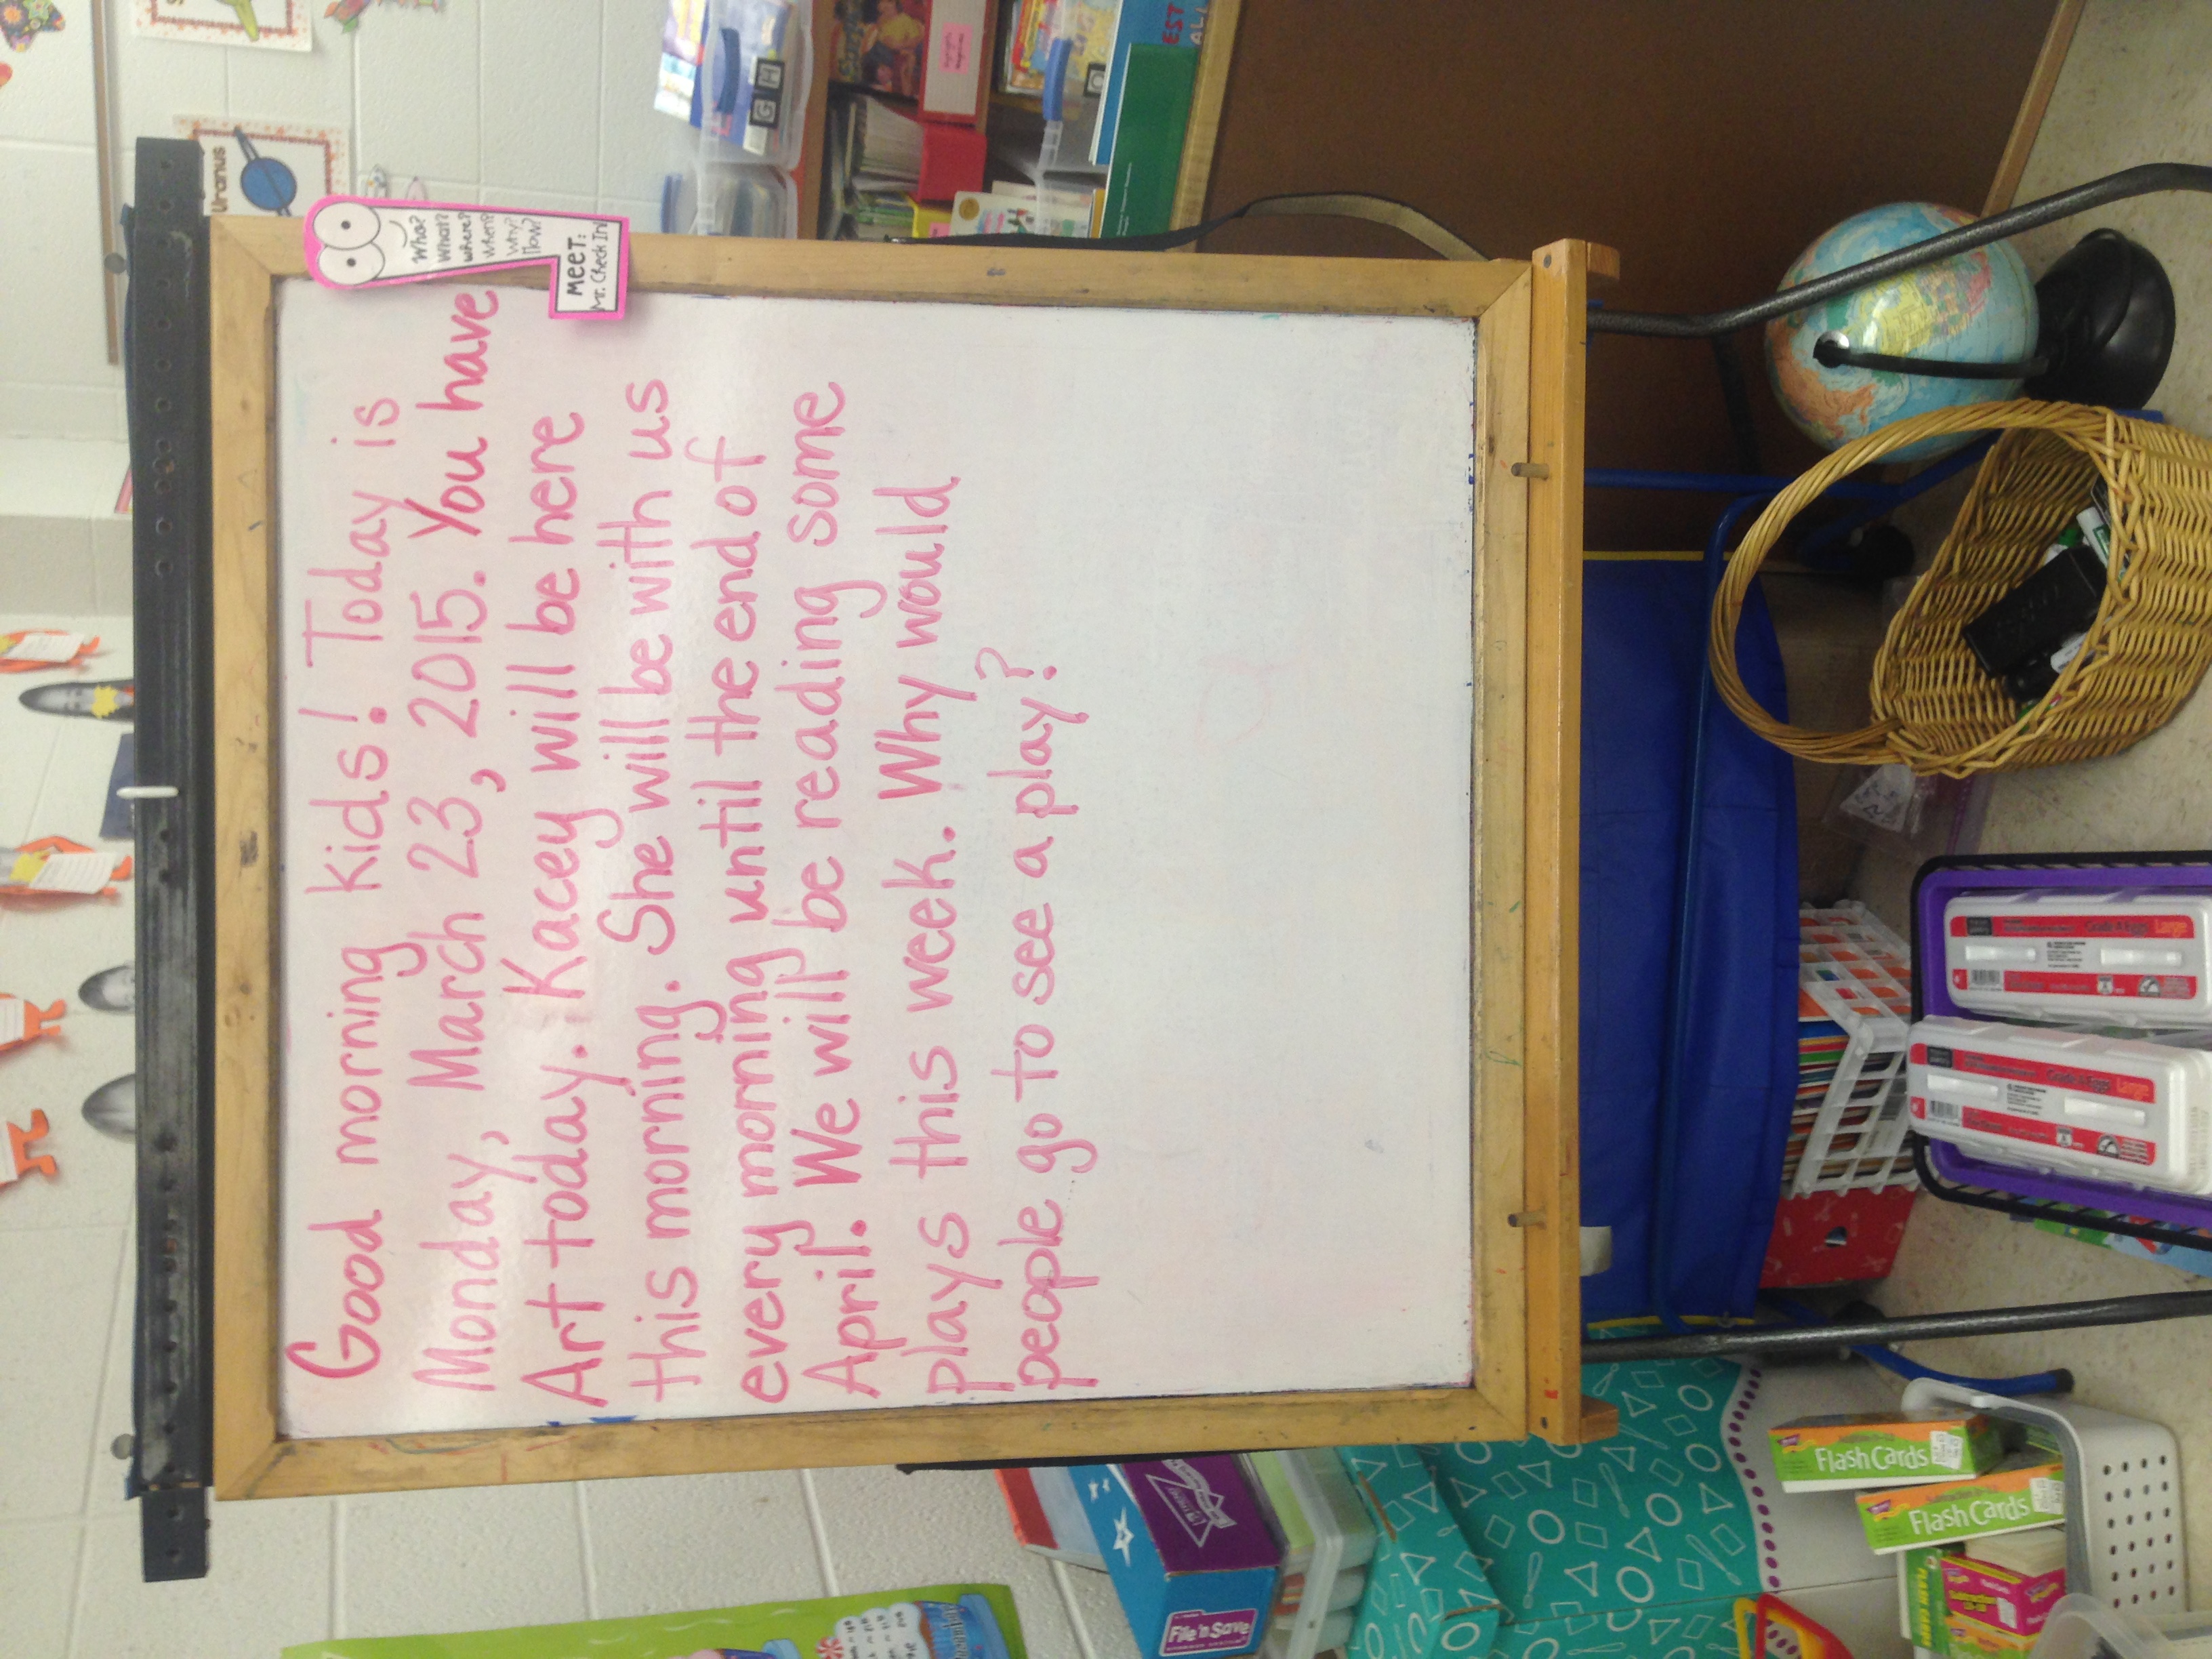 Good morning kids! Today is
Monday, March 23, 2015. You have
Art today. Kacey will be here
this morning. She will be with us
every morning until the end of
April. We will be reading some
plays this week. Why would
people go to see a play?
Who?
What?
Where?
When?
Why?
How?
MEET:
Mr. Check In!
Uranus
G H
File 'n Save
Flash Cards
Flash Cards
FLASH CARDS
EST